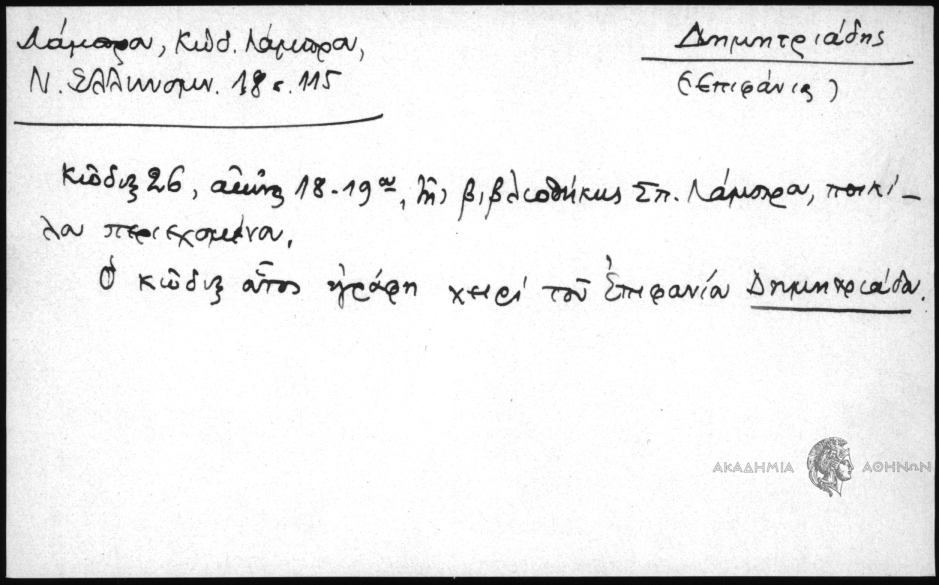 Λάμπρου, Κώδ. Λάμπρου,
Ν. Ἑλληνομν. 18 σ. 115
Δημητριάδης
(Ἐπιφάνιος)
Κῶδιξ 26, αἰῶνος 18-19ου, τῆς βιβλιοθήκης Σπ. Λάμπρου, ποικί-
λου περιεχομένου.
Ὁ κῶδιξ οὗτος ἐγράφη χειρὶ τοῦ Ἐπιφανίου Δημητριάδου.
ΑΚΑΔΗΜΙΑ ΑΘΗΝΩΝ